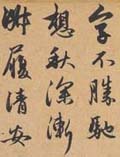 字不勝馳
想秋深漸
履清安